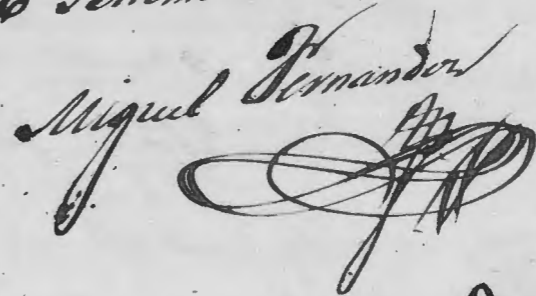 Miguel Fernandez